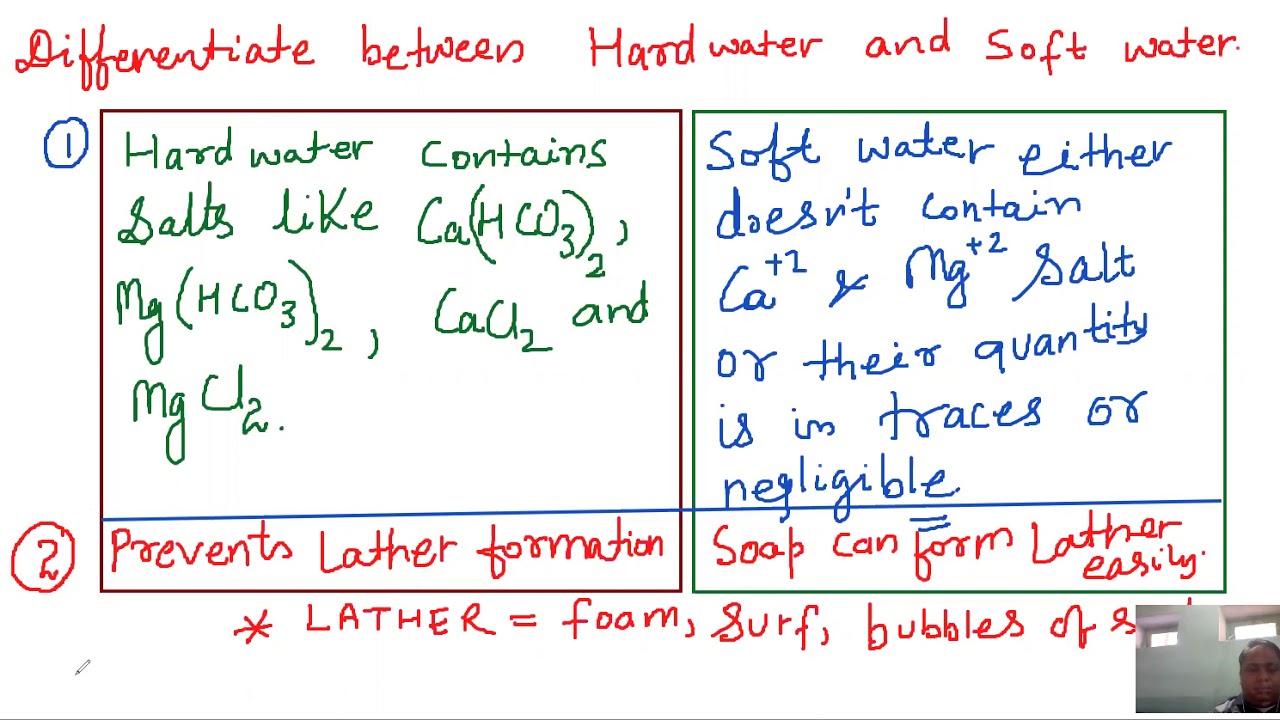 Differentiate between Hard water and Soft water.
① Hard water contains
salts like Ca(HCO₃)₂,
Mg(HCO₃)₂, CaCl₂ and
MgCl₂.
Soft water either
doesn't contain
Ca⁺² & Mg⁺² salt
or their quantity
is in traces or
negligible.
② Prevents Lather formation
Soap can form Lather
easily.
* LATHER = foam, surf, bubbles of